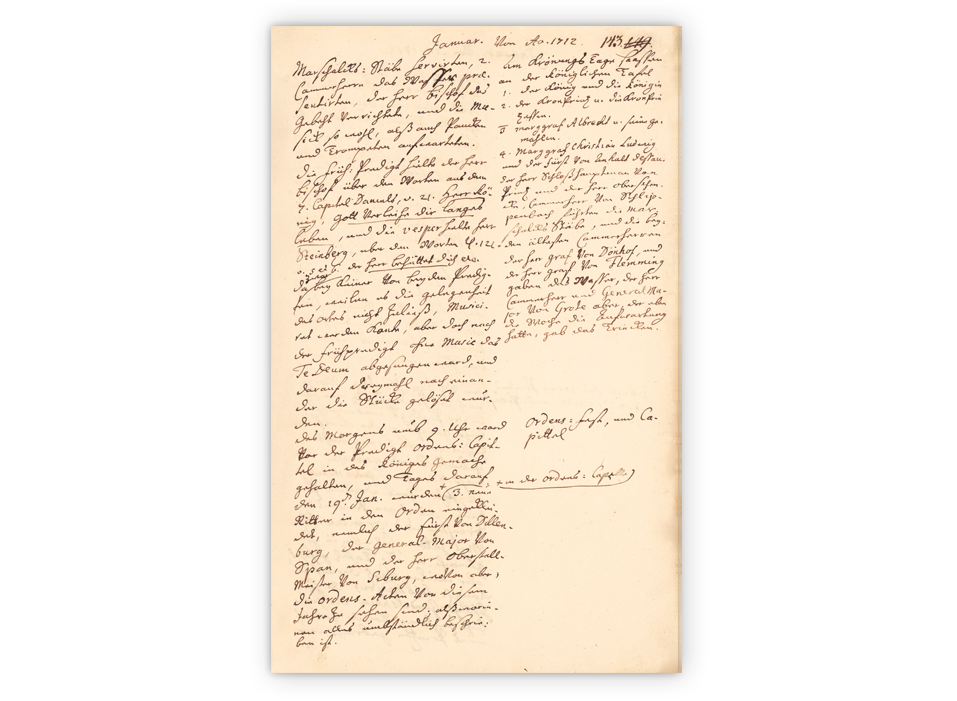 Januar. Von Ao. 1712. 143. 149.
Marschalds: Stäbe servirten, 2.
Cammerherrn das Wasser præ-
sentirten, der Herr Bischof das
Gebeht verrichtete, und die Mu-
sick so wohl, alß auch Paucken
und Trompeten aufwarteten.
Die Früh: Predigt hielte der Herr
Bischof über den Worten aus dem
Capitel Daniels, v. 21. Herr Kö-
nig, Gott verleihe dir langes
leben, und die vesper hielte Herr
Steinberg, über den Worten
der Herr behüttet dich etc.
dabey keiner von beyden Predig-
ten, weilen es die gelegenheit
des ortes nicht zuließ, Musici-
ret werden konte, aber doch nach
der frühpredigt eine Music das
Te Deum abgesungen ward, und
darauf dreymahl nach einan-
der die Stücke gelöset wur-
den.
des Morgens umb 9. Uhr ward
Vor der Predigt ordens: Capit-
tel in des Königes gemache
gehalten, und Tages darauf
den 19ten Jan. wurden + 3. neue
Ritter in den Orden eingeklei-
det, nemlich der Fürst Von Dillen-
burg, der General-Major Von
Span, und der Herr Oberstall-
Meister Von Siburg, wovon aber,
die ordens-Acten Von diesem
Jahre zu sehen sind, alß worin-
nen alles umbständlich beschrie-
ben ist.
Am Krönungs Tage saßen
an der Königlichen Tafel
1. der König und die Königin
2. der Kronprintz u. die Kronprin-
zeßen.
3 Marggraf Albrecht u. seine ge-
mahlin.
4. Marggraf Christian Ludwig
und der Fürst Von Anhalt Dessau.
der Herr Schloßhauptman Von
Printz und der Herr Oberschen-
cke, Cammerherr Von Schlip-
penbach führten die Mar-
schalds Stäbe, und die bey-
den ältesten Cammerherren
der Herr graf Von Dönhof, und
der Herr graf Von Flemming
gaben das Wasser, der Herr
Cammerherr und General Ma-
jor Von Grote aber, der eben
die Woche die Aufwartung
hatte, gab das Trincken.
Ordens: fest, und Ca-
pittel
+ in der ordens: Capelle